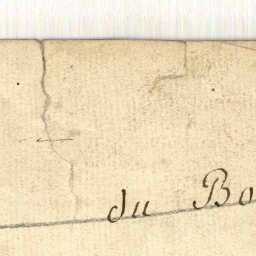 du Bo